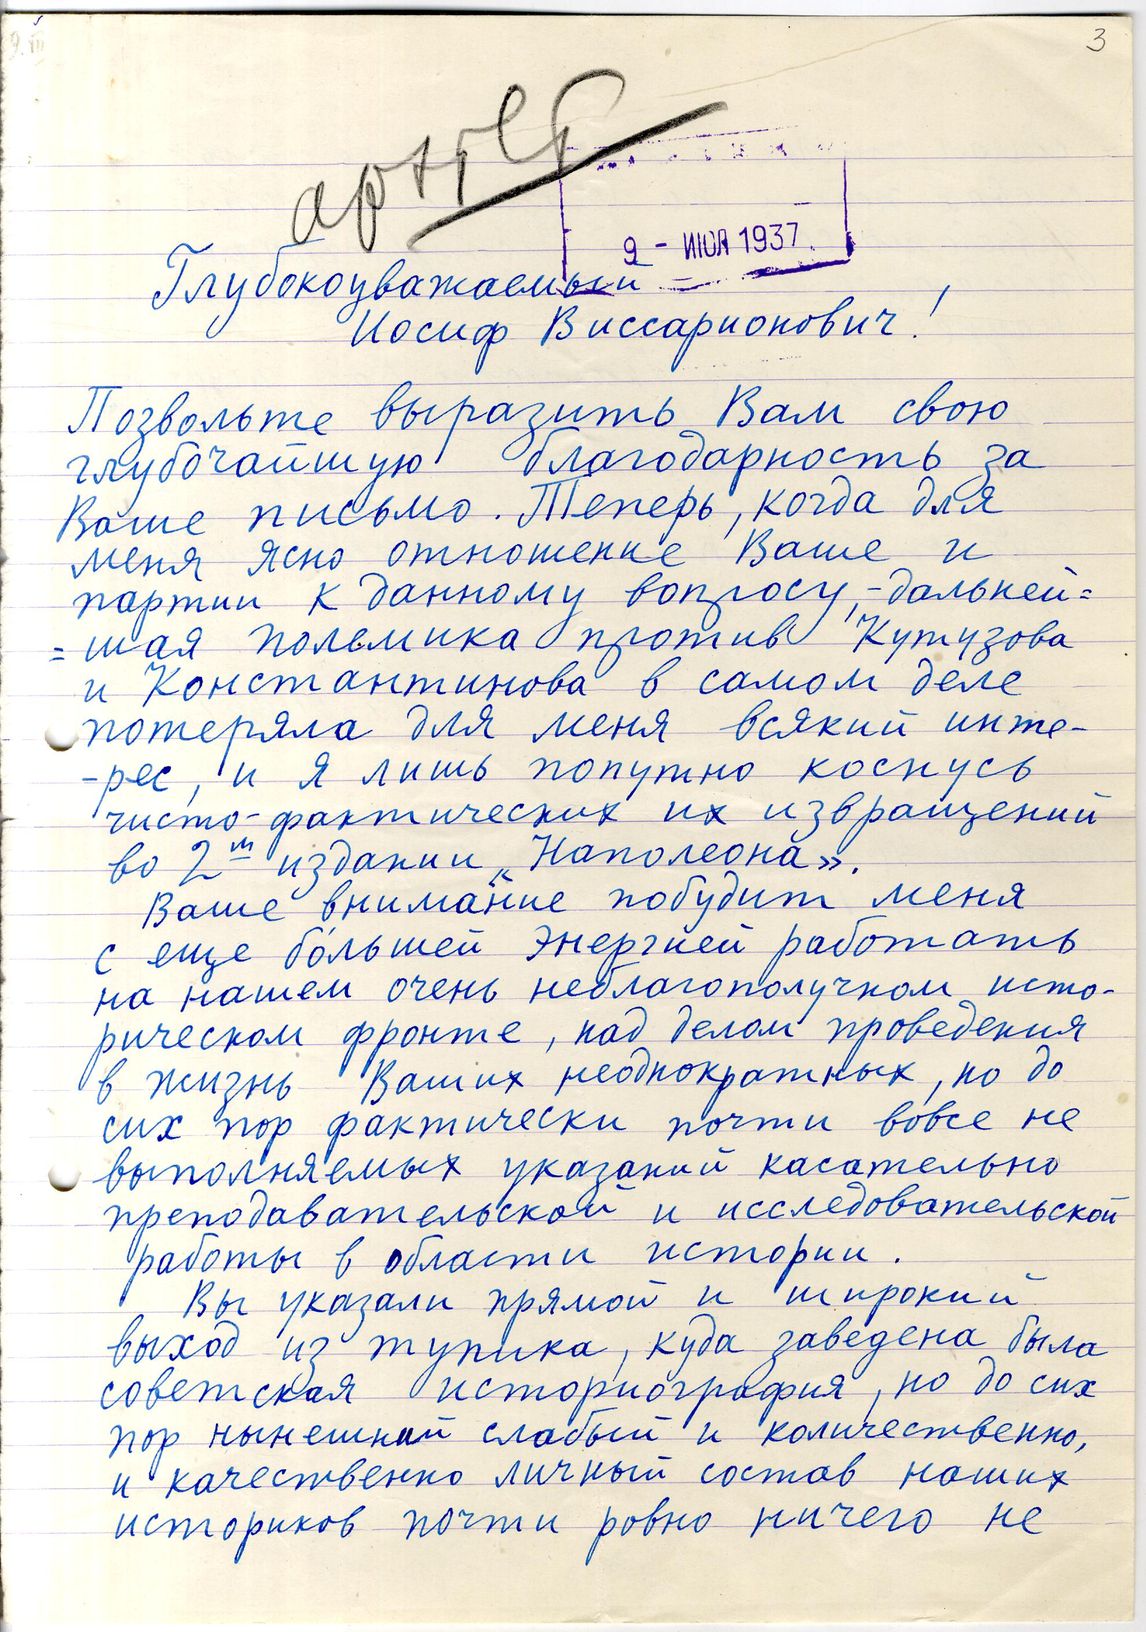 3
архив
9 - ИЮЛ 1937
Глубокоуважаемый
Иосиф Виссарионович!
Позвольте выразить Вам свою
глубочайшую благодарность за
Ваше письмо. Теперь, когда для
меня ясно отношение Ваше и
партии к данному вопросу, - дальней=
=шая полемика против Кутузова
и Константинова в самом деле
потеряла для меня всякий инте-
-рес, и я лишь попутно коснусь
чисто-фактических их извращений
во 2м издании „Наполеона».
Ваше внимание побудит меня
с еще бо́льшей энергией работать
на нашем очень неблагополучном исто-
рическом фронте, над делом проведения
в жизнь Ваших неоднократных, но до
сих пор фактически почти вовсе не
выполняемых указаний касательно
преподавательской и исследовательской
работы в области истории.
Вы указали прямой и широкий
выход из тупика, куда заведена была
советская историография, но до сих
пор нынешний слабый и количественно,
и качественно личный состав наших
историков почти ровно ничего не